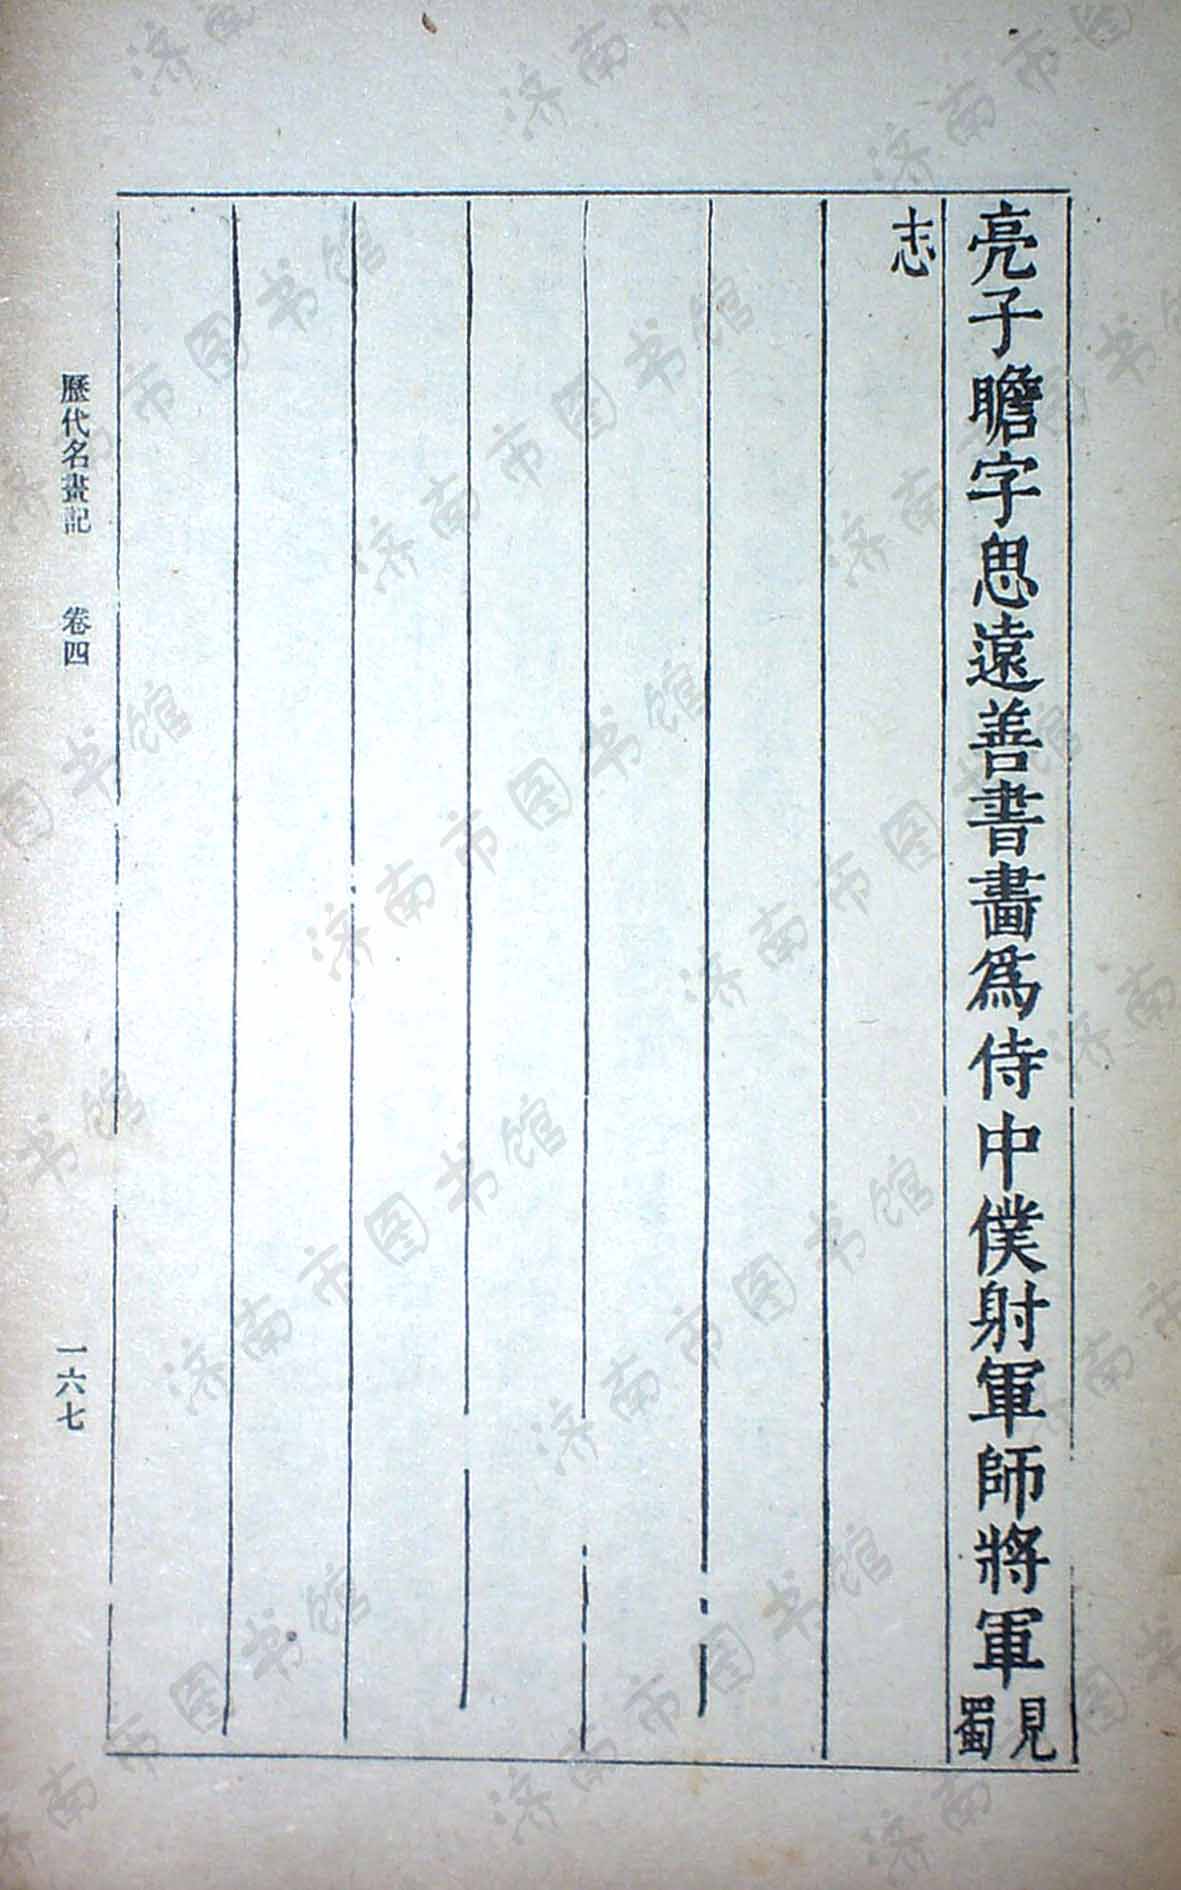 亮子瞻字思遠善書畫為侍中僕射軍師將軍見蜀
志
歷代名畫記 卷四
一六七
济南市图书馆